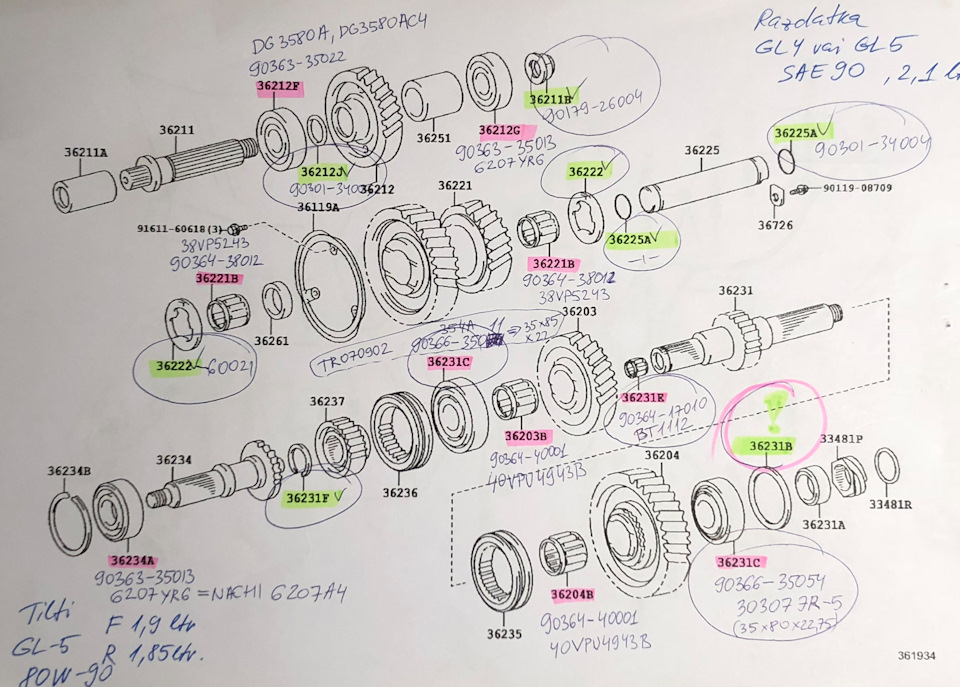 DG3580A, DG3580AC4
90363-35022
36212F
Razdatka
GL4 vai GL5
SAE90 , 2,1 l
36211
36211A
36212J
90301-340
36212
36251
36212G
90363-35013
6207YR6
36211B
90179-26004
36222
36225
36225A
90301-34004
90119-08709
36726
36119A
36221
91611-60618(3)
38VP5243
90364-38012
36221B
36225A
-1-
36221B
90364-38012
38VP5243
36222
60021
36261
TR070902
354A 11 => 35x85
90366-350
x27
36231C
36203
36231
36231K
90364-17010
BT1112
36231B
!
33481P
33481R
36231A
36237
36234
36234B
36231F
36236
36203B
90364-40001
40VPU4943B
36204
36234A
90363-35013
6207YR6 = NACHI 6207A4
36235
36204B
90364-40001
40VPU4943B
36231C
90366-35054
30307JR-5
(35x80x22,75)
Tilti
GL-5
80W-90
F 1,9 ltr
R 1,85ltr.
361934